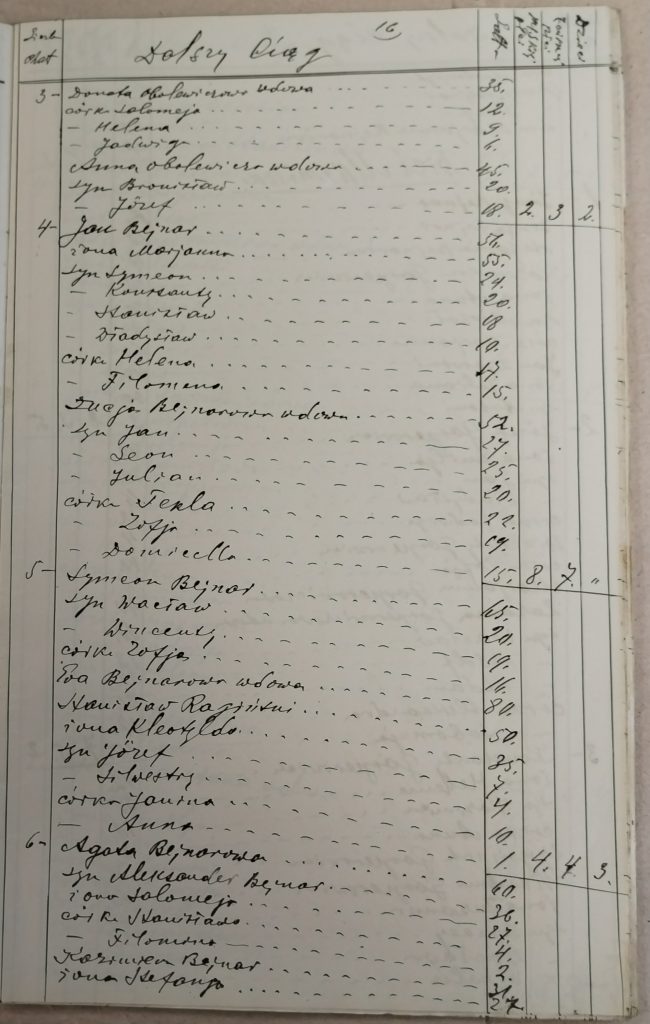 16
Dalszy Ciąg
Lat
Męskiej płci
Żeńskiej płci
Dzieci
3 - Donata Obolewiczowa wdowa 35.
córka Salomeja 12.
- Helena 9.
- Jadwiga 6.
Anna Obolewicz wdowa 45.
syn Bronisław 20.
- Józef 18. 2. 3 2.
4 - Jan Bejnar 54.
żona Marjanna 55.
syn Symeon 24.
- Konstanty 20.
- Stanisław 18
- Władysław 10.
córka Helena 17.
- Filomena 15.
Łucja Bejnarowa wdowa 52.
syn Jan 27.
- Leon 25.
- Julian 20.
córka Tekla 22.
- Zofja 19.
- Domicella 15. 8. 7. "
5 - Symeon Bejnar 65.
syn Wacław 20.
- Wincenty 19.
córka Zofja 16.
Ewa Bejnarowa wdowa 80.
Stanisław 50.
żona Kleotylda 35.
syn Józef 7.
- Silwestry 4.
córka Janina 10.
- Anna 1. 4. 4. 3.
6 - Agata Bejnarowa 60.
syn Aleksander Bejnar 36.
żona Salomeja 27.
córka Stanisława 4.
- Filomena 2.
Kazimierz Bejnar
żona Stefanja 27